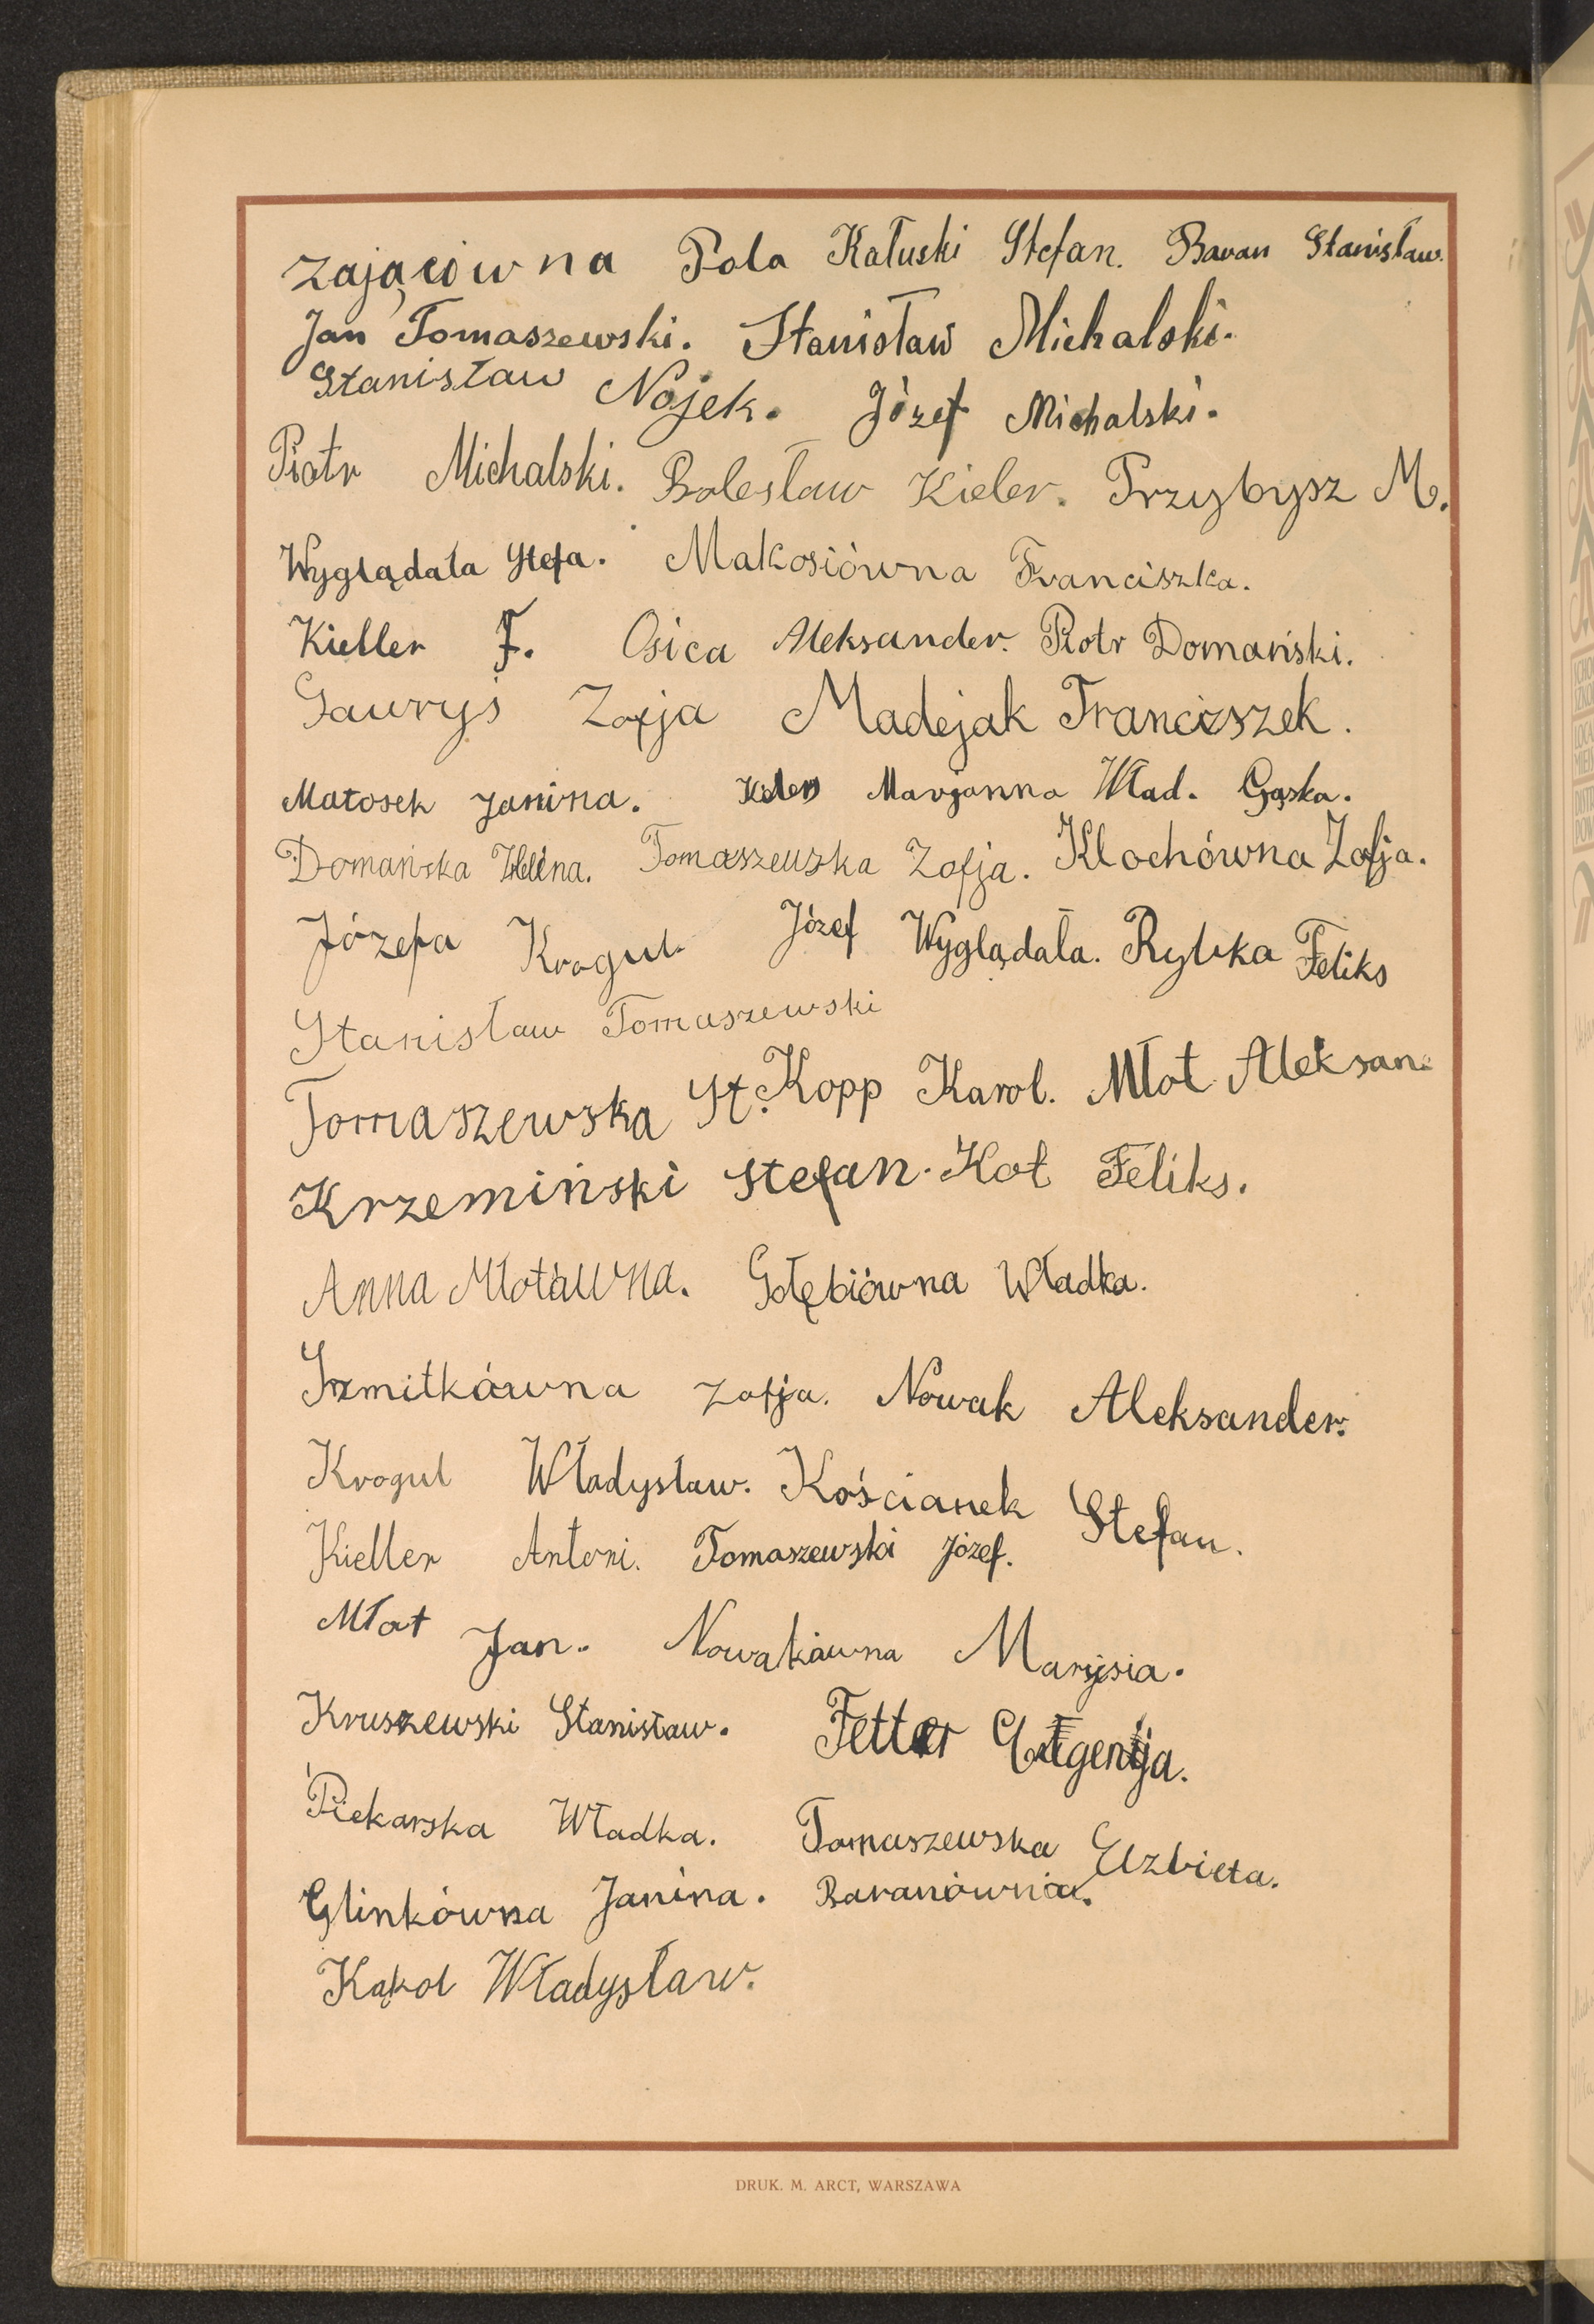 Zającówna Pola Kałuski Stefan. Baran Stanisław.
Jan Tomaszewski. Stanisław Michalski.
Stanisław Nojek. Józef Michalski.
Piotr Michalski. Bolesław Kieler. Przybysz M.
Wyglądała Stefa. Makosiówna Franciszka.
Kieller F. Osica Aleksander. Piotr Domański.
Gauryś Zofja Madejak Franciszek.
Matosek Janina. Marjanna Wład. Gąska.
Domańska Helena. Tomaszewska Zofja. Klochówna Zofja.
Józefa Krogul. Józef Wyglądała. Rybka Feliks
Stanisław Tomaszewski
Tomaszewska St. Kopp Karol. Młot Aleksan.
Krzemiński Stefan. Kot Feliks.
Anna Młotówna. Gołębiówna Władka.
Szmitkówna Zofja. Nowak Aleksander.
Krogul Władysław. Kościanek Stefan.
Kieller Antoni. Tomaszewski Józef.
Młot Jan. Nowakówna Marysia.
Kruszewski Stanisław. Fetter Eugenja.
Piekarska Władka. Tomaszewska Elzbieta.
Glinkówna Janina. Baranówna.
Kąkol Władysław.
DRUK. M. ARCT, WARSZAWA